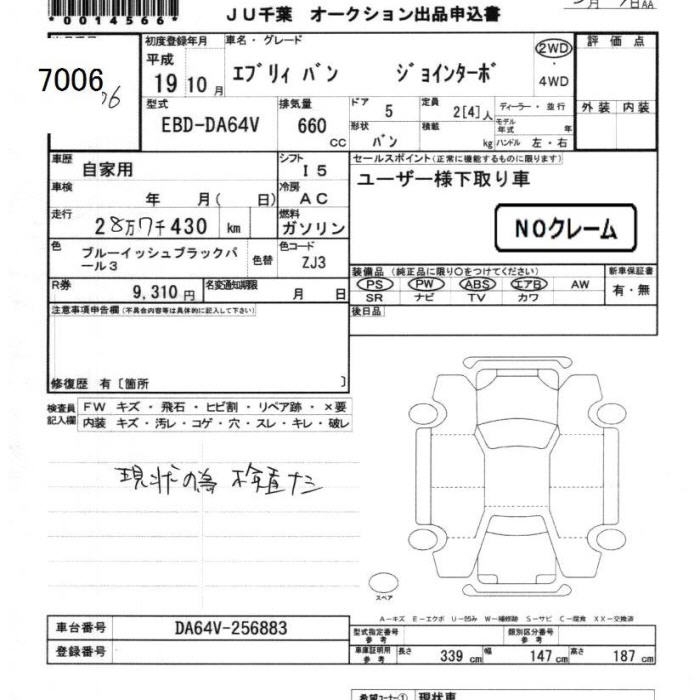 *0014566*
JU千葉 オークション出品申込書
7006
76
初度登録年月
平成
19 10 月
車名・グレード
エブリィ バン ジョインターボ
2WD
・
4WD
評 価 点
外 装 内 装
型式
EBD-DA64V
排気量
660 CC
ドア 5
形状 バン
定員 2[4] 人
積載 kg
ディーラー・並行
モデル年式 年
ハンドル 左・右
車歴 自家用
シフト I5
セールスポイント(正常に機能するものに限ります)
ユーザー様下取り車
車検 年 月( 日)
冷房 AC
NOクレーム
走行 28万7千430 km
燃料 ガソリン
色 ブルーイッシュブラックパール3
色替
色コード ZJ3
装備品 (純正品に限り○をつけてください)
PS PW ABS エアB AW
SR ナビ TV カワ
新車保証書
有・無
R券 9,310 円
名変通知期限 月 日
後日品
注意事項申告欄(不具合内容等は具体的に記入して下さい)
修復歴 有〔箇所 〕
検査員記入欄
FW キズ・飛石・ヒビ割・リペア跡・×要
内装 キズ・汚レ・コゲ・穴・スレ・キレ・破レ
現状の為 検査ナシ
スペア
A-キズ E-エクボ U-凹み W-補修跡 S-サビ C-腐食 XX-交換済
車台番号 DA64V-256883
登録番号
型式指定番号 参考
類別区分番号 参考
車庫証明用 参考
長さ 339 cm 幅 147 cm 高さ 187 cm
希望コーナー① 現状車